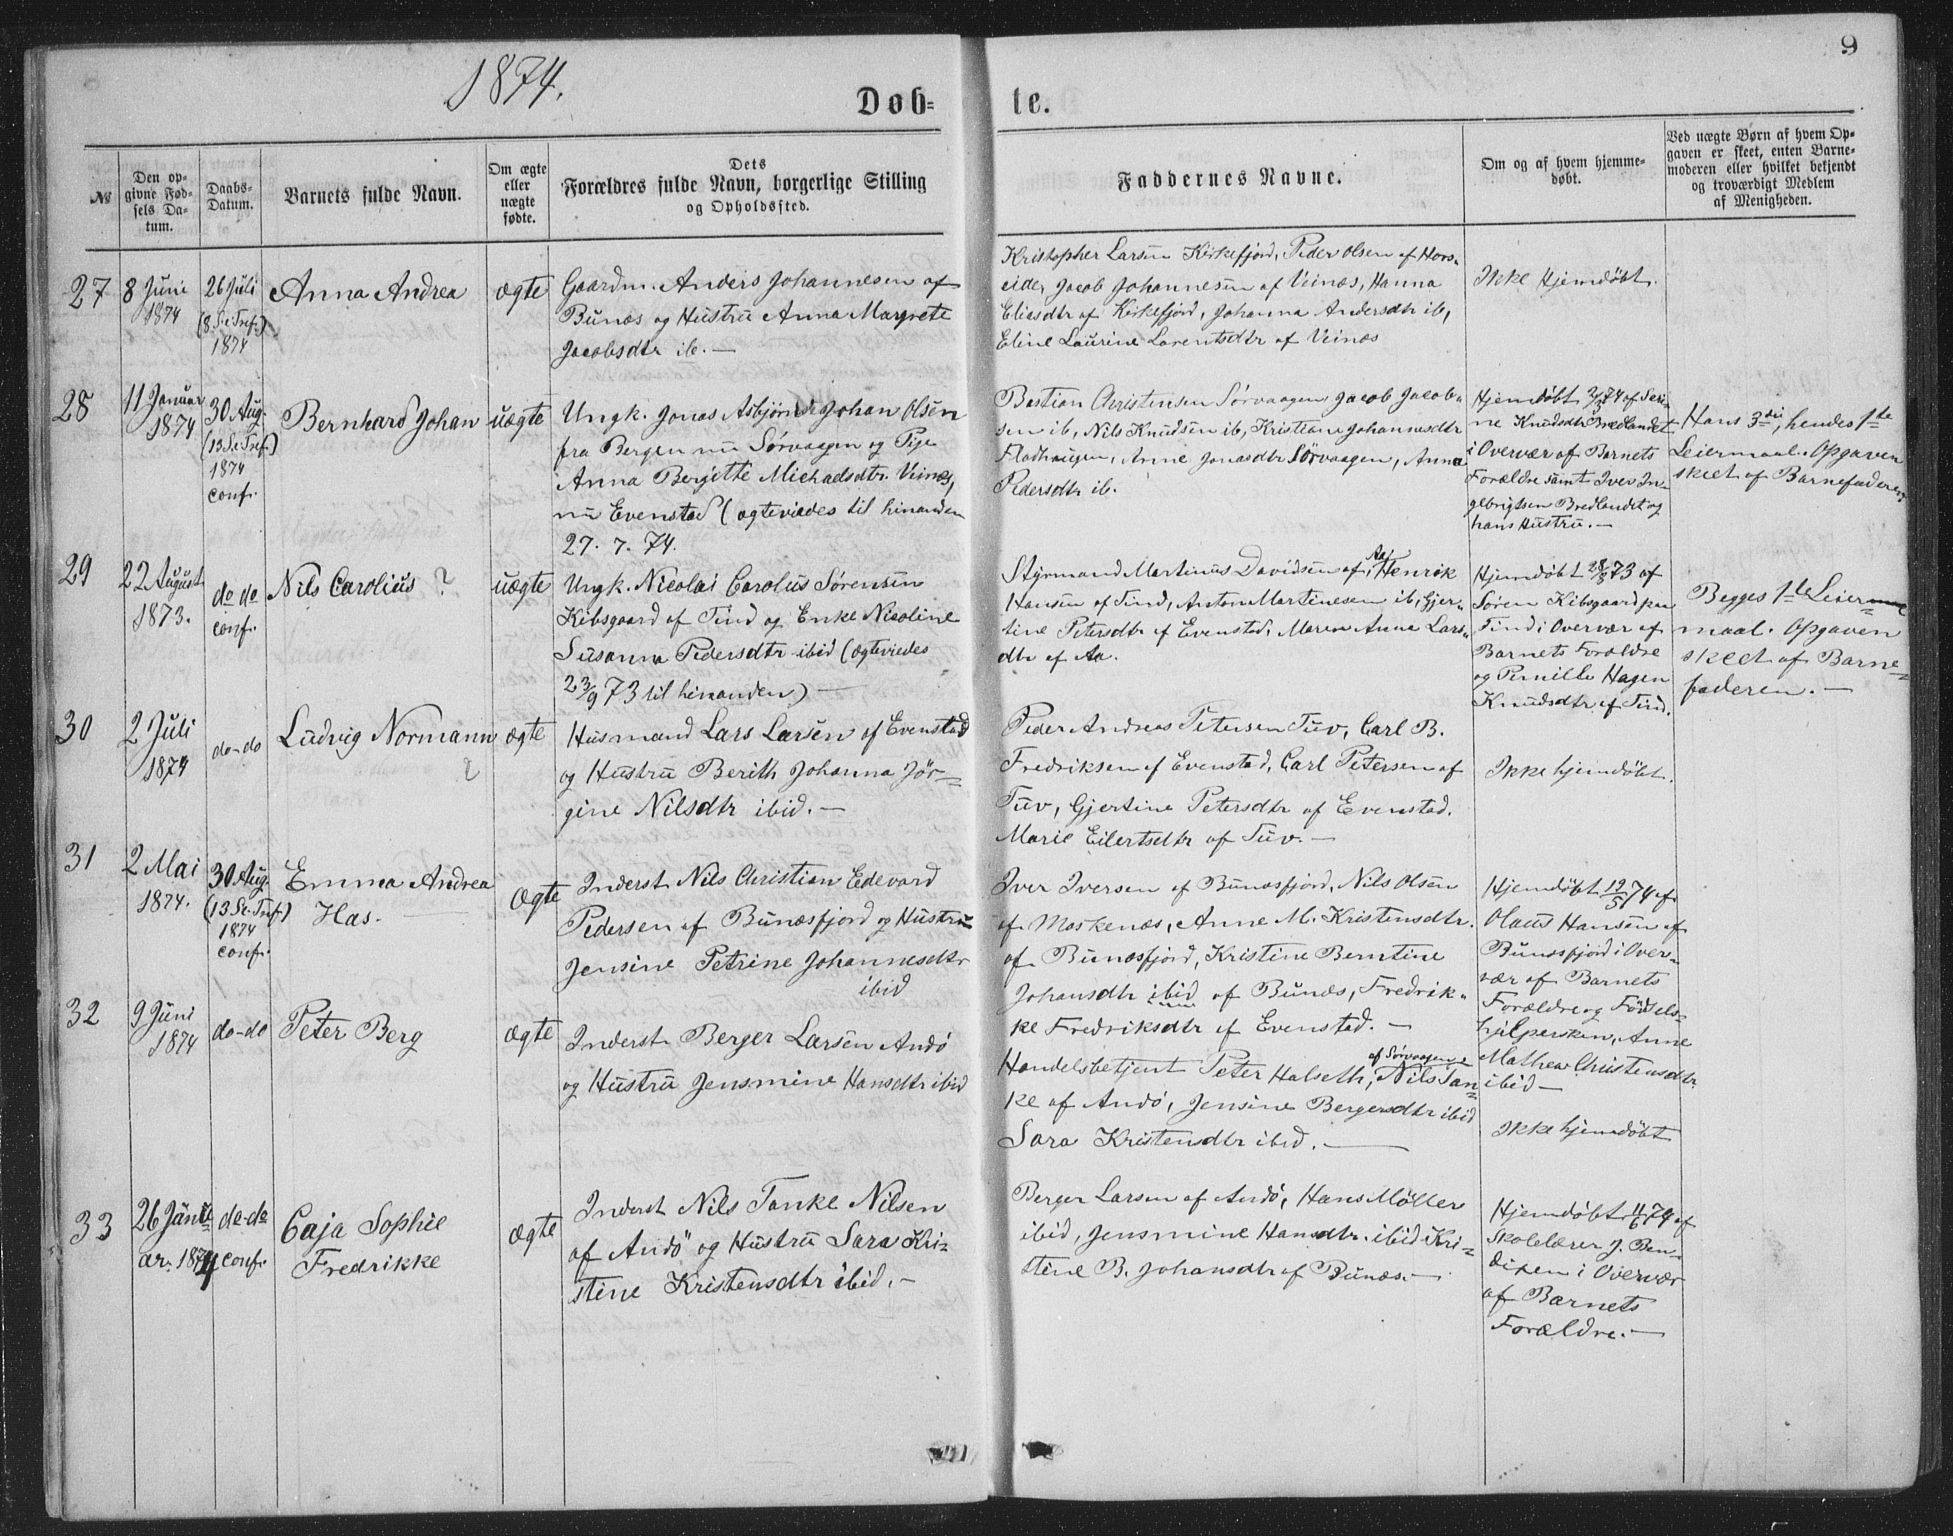 1874.
9
Döb-
te.
№
Den op-
givne Fød-
sels Da-
tum.
Daabs-
Datum.
Barnets fulde Navn.
Om ægte
eller
uægte
fødte.
Dets
Forældres fulde Navn, borgerlige Stilling
og Opholdssted.
Faddernes Navne.
Om og af hvem hjemme-
døbt.
Ved uægte Børn af hvem Op-
gaven er skeet, enten Barne-
moderen eller hvilket bekjendt
og troværdigt Medlem
af Menigheden.
27
8 Juni
1874
26 Juli
(8. S. e. Tref.)
1874
Anna Andrea
ægte
Gaardm. Anders Johannesen af
Bunæs og Hustru Anna Margrete
Jacobsdtr ib. —
Kristopher Larsen Kirkefjord, Peder Olsen af Hors-
eide, Jacob Johannesen af Veinæs, Hanna
Eliasdtr af Kirkefjord, Johanna Andersdtr ib,
Eline Laurine Larentsdtr af Veinæs
Ikke Hjemdøbt.
28
11 Januar
1874
30 Aug.
(13. S. e. Tref.)
1874
conf.
Bernhard Johan
uægte
Ungk. Jonas Asbjørn Johan Olsen
fra Bergen nu Sørvaagen og Pige
Anna Bergitte Michaelsdtr. Veines,
nu Evenstad (ægteviedes til hinanden
27. 7. 74.
Bastian Christensen Sørvaagen Jacob Jacob-
sen ib, Nils Knudsen ib, Kristiane Johannesdtr
Fladhaugen, Anne Jonasdtr Sørvaagen, Anna
Pedersdtr ib.
Hjemdøbt 74 af
ne Knudsdtr Bredlandet
i Overvær af Barnets
Forældre samt Iver In-
gebrigtsen Bredlandet og
hans Hustru. —
Hans 3die, hendes 1ste
Leiermaal. Opgaven
skeet af Barnefaderen
29
22 August
1873.
do do
conf.
Nils Carolius ?
uægte
Ungk. Nicolai Carolus Sørensen
Kibsgaard af Tind og Enke Nicoline
Susanna Pedersdtr ibid (ægteviedes
23/9 73 til hinanden) —
Styrmand Martinus Davidsen af Aa, Henrik
Hansen af Tind, Anton Martinesen ib, Gjer-
tine Petersdtr af Evenstad, Maren Anna Lars-
dtr af Aa.
Hjemdøbt 28/8 73 af
Søren Kibsgaard paa
Tind i Overvær af
Barnets Forældre
og Pernille Hagen
Knudsdtr af Tind.
Begges 1ste Leier-
maal. Opgaven
skeet af Barne-
faderen. —
30
2 Juli
1874
do-do
Ludvig Normann
?
ægte
Husmand Lars Larsen af Evenstad
og Hustru Berith Johanna Jör-
gine Nilsdtr ibid. —
Peder Andreas Petersen Tuv, Carl B.
Fredriksen af Evenstad, Carl Petersen af
Tuv, Gjertine Petersdtr af Evenstad.
Marie Eilertsdtr af Tuv. —
Ikke hjemdøbt.
31
2 Mai
1874.
30 Aug.
(13. S. e. Tref.)
1874
conf.
Emma Andrea
Has. —
Ægte
Inderst Nils Christian Edevard
Pedersen af Bunæsfjord og Hustru
Jensine Petrine Johannesdtr
ibid
Iver Iversen af Bunæsfjord, Nils Olsen
af Moskenæs, Anne M. Kristensdtr.
af Bunæsfjord, Kristine Berntine
Johansdtr ibid af Bunæs, Fredrik-
ke Fredriksdtr af Evenstad. —
Hjemdøbt 19/5 74 af
Olaus Hansen af
Bunæsfjord i Over-
vær af Barnets
Forældre og Fødsels-
hjelpersken, Anne
Mathea Christensdtr
ibid —
32
9 Juni
1874
do-do
Peter Berg
Ægte
Inderst Berger Larsen Andö
og Hustru Jensmine Hansdtr ibid
Handelsbetjent Peter Halseth, af Sørvaagen, Nils Tan-
ke af Andö, Jensine Bergersdtr ibid
Sara Kristensdtr ibid. —
Ikke hjemdøbt
33
26 Janu-
ar. 1874
do-do
conf.
Caja Sophie
Fredrikke
Ægte
Inderst Nils Tanke Nilsen
af Andö og Hustru Sara Kri-
stine Kristensdtr ibid. —
Berger Larsen af Andö, Hans Möller
ibid, Jensmine Hansdtr. ibid Kri-
stine B. Johansdtr af Bunæs. —
Hjemdøbt 74 af
Skolelærer J. Ben-
dixen i Overvær
af Barnets
Forældre. —